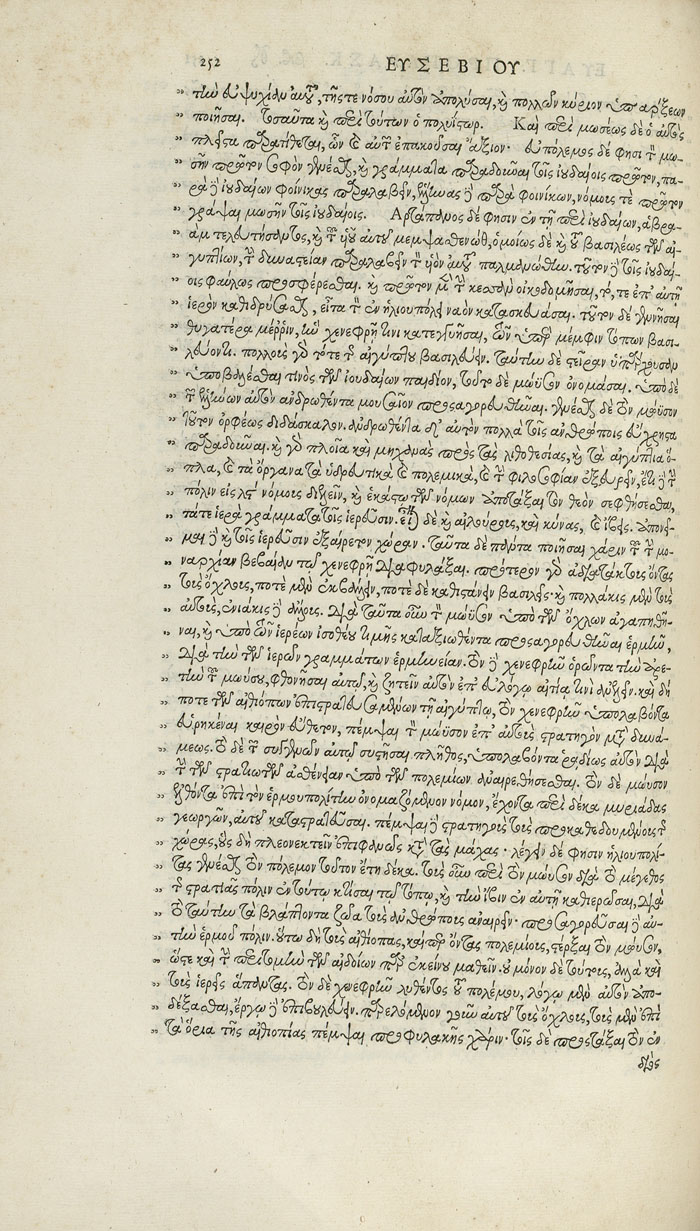 252 ΕΥΣΕΒΙΟΥ
τὴν εὐψυχίαν αὐτοῦ, τῆς τε νόσου αὐτὸν ἀπολῦσαι, καὶ πολλῶν κύριον ὑπαρξεων
ποιῆσαι. τοσαῦτα καὶ περὶ τούτων ὁ πολυΐστωρ. Καὶ περὶ μωσέως δὲ ὁ αὐτὸς
πλεῖστα παρατίθεται, ὧν καὶ αὐτῶν ἐπακοῦσαι ἄξιον· εὐπόλεμος δέ φησι τὸν μω-
σῆν πρῶτον σοφὸν γενέσθαι, καὶ γράμματα παραδοῦναι τοῖς ἰουδαίοις πρῶτον, πα-
ρὰ δὲ ἰουδαίων φοίνικας παραλαβεῖν, ἕλληνας δὲ παρὰ φοινίκων, νόμους τε πρῶτον
γράψαι μωσῆν τοῖς ἰουδαίοις. Ἀρτάπανος δέ φησιν ἐν τῇ περὶ ἰουδαίων, ἀβρα-
ὰμ τελευτήσαντος, καὶ τοῦ υἱοῦ αὐτοῦ μεμψασθενώθ, ὁμοίως δὲ καὶ τοῦ βασιλέως τῶν αἰ-
γυπτίων, τὴν δυναστείαν παραλαβεῖν τὸν υἱὸν αὐτοῦ παλμανώθην. τοῦτον δὲ τοῖς ἰουδαί-
οις φαύλως προσφέρεσθαι. καὶ πρῶτον μὲν τὴν κεσσὰν οἰκοδομῆσαι, τό, τε ἐπ' αὐτῇ
ἱερὸν καθιδρύσασθαι, εἶτα τὸν ἐν ἡλιουπόλει ναὸν κατασκευάσαι. τοῦτον δὲ γεννῆσαι
θυγατέρα μέρριν, ἣν χενεφρῆ τινι κατεγγυῆσαι, τῶν ὑπὲρ μέμφιν τόπων βασι-
λεύοντι. πολλοὺς γὰρ τότε τῆς αἰγύπτου βασιλεύειν. ταύτην δὲ στεῖραν ὑπάρχουσαν
ὑποβαλέσθαι τινὸς τῶν ἰουδαίων παιδίον, τοῦτο δὲ μώϋσον ὀνομάσαι. ὑπὸ δὲ
τῶν ἑλλήνων αὐτὸν ἀνδρωθέντα μουσαῖον προσαγορευθῆναι. γενέσθαι δὲ τὸν μώϋσον
τοῦτον ὀρφέως διδάσκαλον. ἀνδρωθέντα δ' αὐτὸν πολλὰ τοῖς ἀνθρώποις εὔχρηστα
παραδοῦναι. καὶ γὰρ πλοῖα καὶ μηχανὰς πρὸς τὰς λιθοθεσίας, καὶ τὰ αἰγύπτια ὅ-
πλα, καὶ τὰ ὄργανα τὰ ὑδρευτικὰ καὶ πολεμικὰ, καὶ τὴν φιλοσοφίαν ἐξευρεῖν, ἔτι δὲ τὴν
πόλιν εἰς λϛ' νόμους διελεῖν, καὶ ἑκάστῳ τῶν νόμων ἀποτάξαι τὸν θεὸν σεφθήσεσθαι,
τά τε ἱερὰ γράμματα τοῖς ἱερεῦσιν. εἶναι δὲ καὶ αἰλούρους, καὶ κύνας, καὶ ἴβεις. ἀπονεῖ-
μαι δὲ καὶ τοῖς ἱερεῦσιν ἐξαίρετον χώραν. ταῦτα δὲ πάντα ποιῆσαι χάριν τοῦ τὴν μο-
ναρχίαν βεβαίαν τῷ χενεφρῇ διαφυλάξαι. πρότερον γὰρ ἀδιατάκτους ὄντας
τοὺς ὄχλους, ποτὲ μὲν ἐκβάλλειν, ποτὲ δὲ καθιστάνειν βασιλεῖς· καὶ πολλάκις μὲν τοὺς
αὐτοὺς, ἐνιάκις δὲ ἄλλους. διὰ ταῦτα οὖν τὸν μώϋσον ὑπὸ τῶν ὄχλων ἀγαπηθῆ-
ναι, καὶ ὑπὸ τῶν ἱερέων ἰσοθέου τιμῆς καταξιωθέντα προσαγορευθῆναι ἑρμῆν,
διὰ τὴν τῶν ἱερῶν γραμμάτων ἑρμηνείαν. τὸν δὲ χενεφρῆν ὁρῶντα τὴν ἀρε-
τὴν τοῦ μωΰσου, φθονῆσαι αὐτῷ, καὶ ζητεῖν αὐτὸν ἐπ' εὐλόγῳ αἰτίᾳ τινὶ ἀνελεῖν. καὶ δή
ποτε τῶν αἰθιόπων ἐπιστρατευσαμένων τῇ αἰγύπτῳ, τὸν χενεφρῆν ὑπολαβόντα
εὑρηκέναι καιρὸν εὔθετον, πέμψαι τὸν μώϋσον ἐπ' αὐτοὺς στρατηγὸν μετὰ δυνά-
μεως. τὸ δὲ τῶν συγγενῶν αὐτῷ συστῆσαι πλῆθος, ὑπολαβόντα ῥᾳδίως αὐτὸν διὰ
τὴν τῶν στρατιωτῶν ἀσθένειαν ὑπὸ τῶν πολεμίων ἀναιρεθήσεσθαι. τὸν δὲ μώϋσον
ἐλθόντα ἐπὶ τὸν ἑρμουπολίτην ὀνομαζόμενον νόμον, ἔχοντα περὶ δέκα μυριάδας
γεωργῶν, αὐτοῦ καταστρατοπεδεῦσαι. πέμψαι δὲ στρατηγοὺς τοὺς προκαθεδουμένους τῆς
χώρας, οὓς δὴ πλεονεκτεῖν ἐπιφανῶς κατὰ τὰς μάχας· λέγειν δέ φησιν ἡλιουπολί-
τας γενέσθαι τὸν πόλεμον τοῦτον ἔτη δέκα. τοὺς οὖν περὶ τὸν μώϋσον διὰ τὸ μέγεθος
τῆς στρατιᾶς πόλιν ἐν τούτῳ κτίσαι τῷ τόπῳ, καὶ τὴν ἴβιν ἐν αὐτῇ καθιερῶσαι, διὰ
τὸ ταύτην τὰ βλάπτοντα ζῶα τοὺς ἀνθρώπους ἀναιρεῖν· προσαγορεῦσαι δὲ αὐ-
τὴν ἑρμοῦ πόλιν. οὕτω δὴ τοὺς αἰθίοπας, καίπερ ὄντας πολεμίους, στέρξαι τὸν μώϋσον,
ὥστε καὶ τὴν περιτομὴν τῶν αἰδοίων παρ' ἐκείνου μαθεῖν. οὐ μόνον δὲ τούτους, ἀλλὰ καὶ
τοὺς ἱερεῖς ἅπαντας. τὸν δὲ χενεφρῆν λυθέντος τοῦ πολέμου, λόγῳ μὲν αὐτὸν ἀπο-
δέξασθαι, ἔργῳ δὲ ἐπιβουλεύειν. παρελόμενον γοῦν αὐτοῦ τοὺς ὄχλους, τοὺς μὲν ἐπὶ
τὰ ὅρια τῆς αἰθιοπίας πέμψαι προφυλακῆς χάριν· τοῖς δὲ προστάξαι τὸν ἐν
διὸς